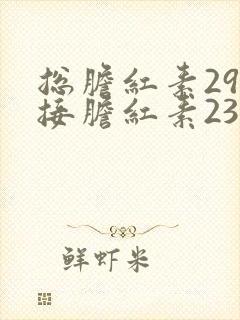 总膽紅素29
接膽紅素23
鮮虾米